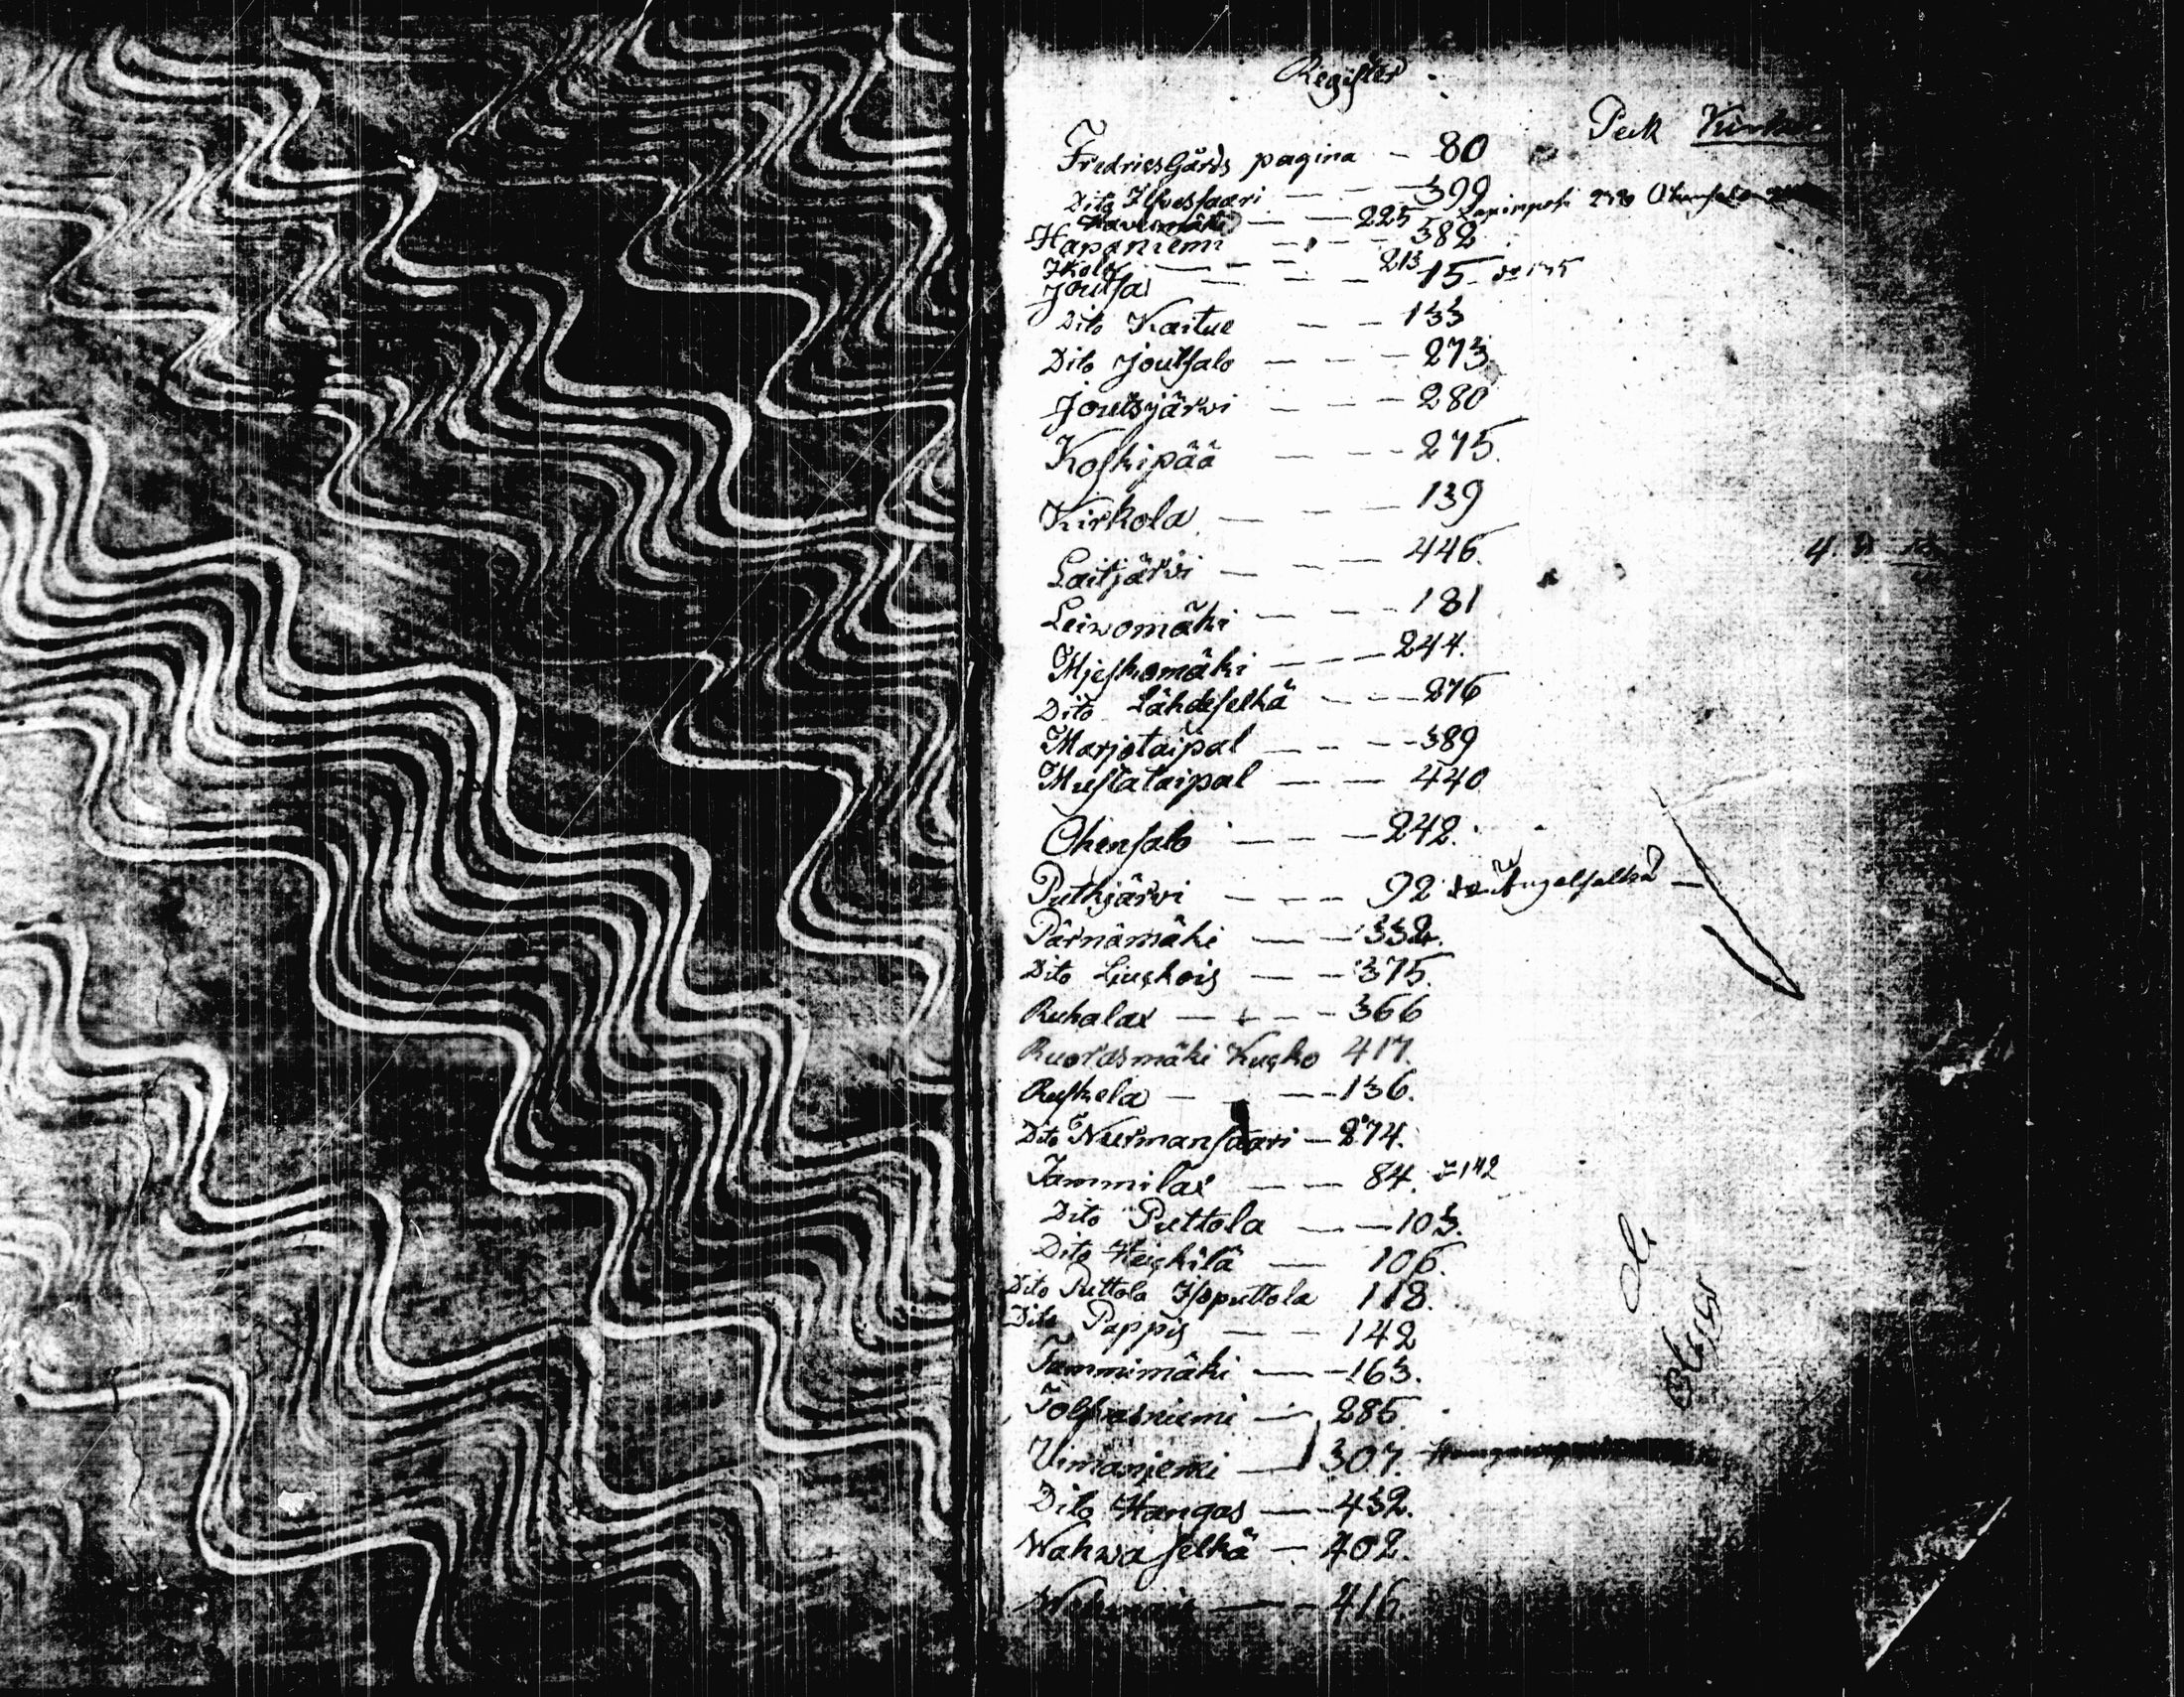 Register
Peck
Fredricsgårds pagina — 80
Dito Ilvessaari — — 399
Havumäki — — 225
Hapaniemi — — — 382
Ikola — — — 213
Joutsa — — 15
Dito Kaitue — — 133
Dito Joutsalo — — — 273
Joutsjärvi — — — 280
Koskipää — — — 275
Kirkola — — — 139
Laitjärvi — — — 446
Leivomäki — — — 181
Mjeskomäki — — — 244.
Dito Lähdeselkä — — — 276
Marjotaipal — — — 389
Mustataipal — — 440
Okensalo — — — 242.
Putkjärvi — — — 92 Ängesselkä —
Pärnämäki — — 332.
Dito Liuckois — — 375.
Ruhalax — — — 366
Ruorasmäki Kucko 417.
Ruskela — — — 136.
Dito Nurmansaari — 274.
Tammilax — — 84. 142
Dito Puttola — — 103.
Dito Heickilä — 106.
Dito Puttola Isoputtola 118.
Dito Pappis — — 142
Tammimäki — — 163.
Tolvasniemi — 285
Uimaniemi — 307.
Dito Hangas — — 432.
Wahwaselkä — 402.
— — 416.